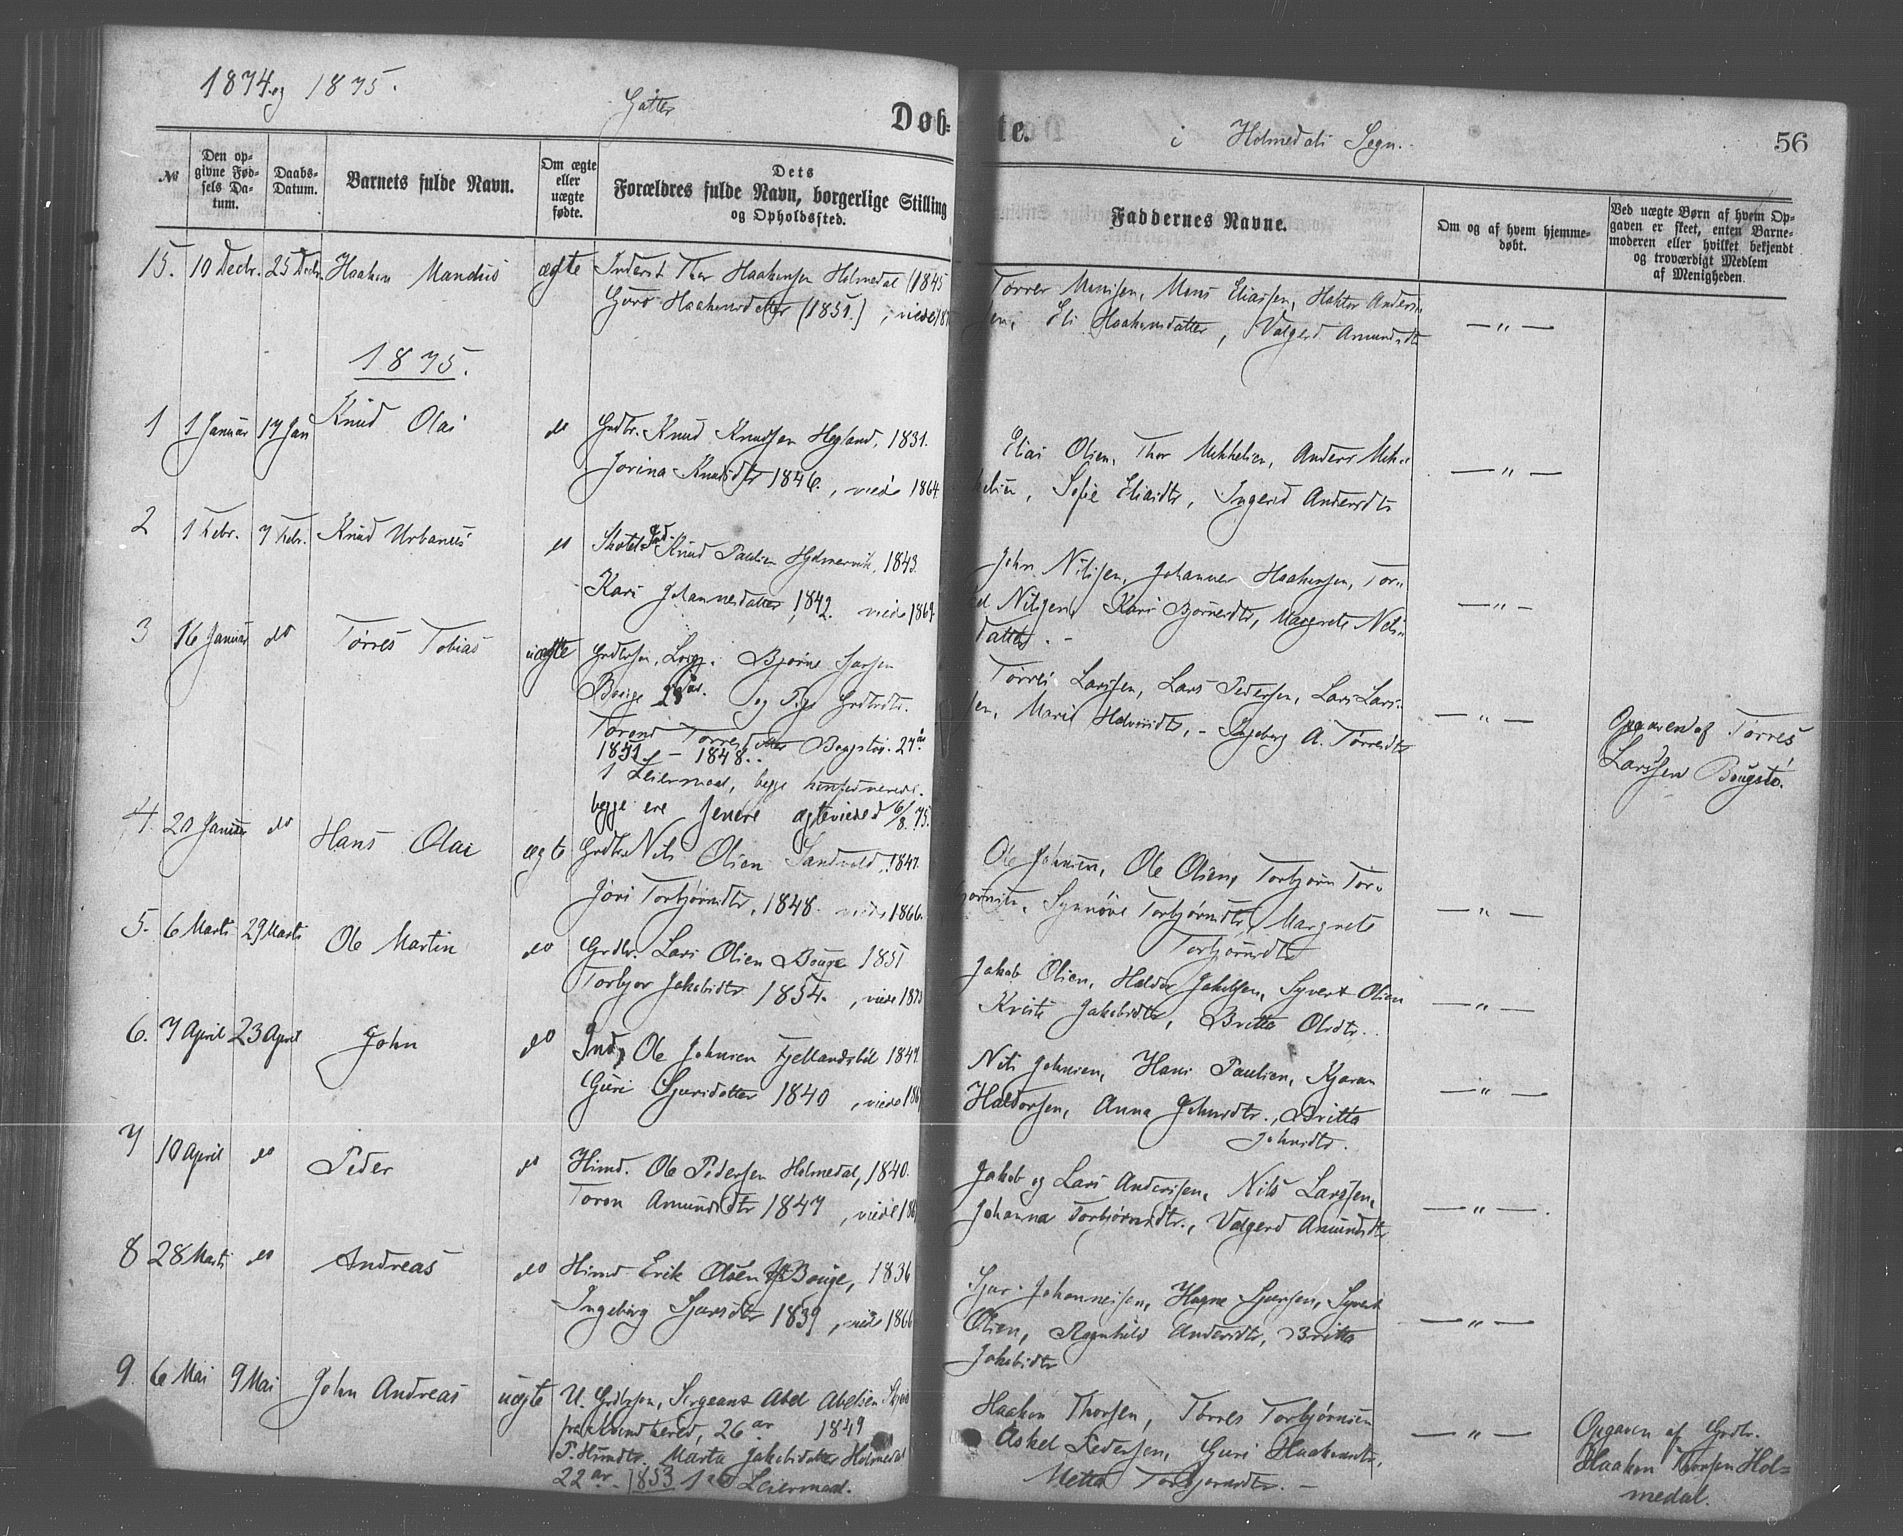 1874 og 1875.
Gutter
Døbte.
i Holmedals Sogn.
56
№
Den opgivne Fødsels Datum.
Daabs-Datum.
Barnets fulde Navn.
Om ægte eller uægte fødte.
Dets Forældres fulde Navn, borgerlige Stilling og Opholdssted.
Faddernes Navne.
Om og af hvem hjemmedøbt.
Ved uægte Børn af hvem Opgaven er skeet, enten Barnemoderen eller hvilket bekjendt og troværdigt Medlem af Menigheden.
15. 10 Decbr. 25 Decbr. Haaken Mandius ægte Inderst Thor Haakensen Holmedal (1845
Guro Haakensdatter (1851.), viede 18
Tørres Monsen, Mons Eliassen, Haktor Anders-
sen, Eli Haakensdatter, Valgerd Amundsdtr — „ —
1875.
1 1 Januar 17 Jan Knud Olai do Grdbr. Knud Knudsen Høyland, 1831.
Jorina Knudsdtr 1846., viede 1864
Elias Olsen, Thor Mikkelsen, Anders Mik-
kelsen, Sofie Eliasdtr, Ingerid Andersdtr — „ —
2 1 Febr. 7 Febr. Knud Urbanus do Knud Paulsen Hjelmervik, 1843.
Kari Johannesdatter, 1842. viede 1869
John Nilssen, Johannes Haakensen, Tor-
Nilssen, Kari Bjørnesdtr, Margrete Nils-
datter. — „ —
3 16 Januar do Tørres Tobias uægte Grdbrsøn, Bjørne Sjursen
Bouge 28 Aar. og Pige Grdbrdtr.
Torond Torresdatter Bougstø. 27 år
1851. — 1848.
1 Leiermaal, begge
begge ere senere ægteviede d 6/8. 75.
Tørres Larssen, Lars Pedersen, Lars Lars-
sen, Marit Halvorsdtr, - Ingeborg A. Tørresdtr — „ —
Opgaven af Tørres
Larssen Bougstø.
4. 20 Januar do Hans Olai ægte Grdbr Nils Olsen Sandvold, 1847.
Jori Torbjørnsdtr, 1848. viede 1866.
Ole Johnsen, Ole Olsen, Torbjørn Tor-
bjørnsen, Synnøve Torbjørnsdtr, Margrete
Torbjørnsdtr — „ —
5. 6 Marts 29 Marts Ole Martin do Grdbr. Lars Olsen Bouge 1851
Torbjor Jakobsdtr 1854., viede 187
Jakob Olsen, Haldor Jakobsen, Syvert Olsen
Kristi Jakobsdtr, Britta Olsdtr. — „ —
6. 7 April 23 April John do Inds. Ole Johnsen Fjellandsbøl 1847.
Guri Sjursdatter 1840, viede 186
Nils Johnsen, Hans Paulsen, Kjaran
Haldorsen, Anna Johnsdtr., Britta
Johnsdtr. — „ —
7 10 April do Peder do Hsmd. Ole Pedersen Holmedal, 1840.
Toron Amundsdtr 1847, viede 186
Jakob og Lars Anderssen, Nils Larssen,
Johanna Torbjørnsdtr., Valgerd Amundsdtr — „ —
8 28 Marts do Andreas do Hsmd. Erik Olsen Bouge, 1836
Ingeborg Sjursdtr 1839, viede 1866
Sjur Johannessen, Hogne Sjursen, Syvert
Olsen, Ragnhild Andersdtr, Britta
Jakobsdtr — „ —
9. 6 Mai 9 Mai John Andreas uægte U. Grdbrsøn, Sergeant Abel Abelsen
fra Kvindherred, 26 aar 1849
P. Hsmdtr. Marta Jakobsdatter Holmedal
22 aar. 1853 1ste Leiermaal.
Haaken Thorsen, Tørres Torbjørnsen
Askel Pedersen, Guri Haakensdtr,
Metta Torbjørnsdtr. — „ —
Opgaven af Grdbr.
Haaken Thorsen Hol-
medal.